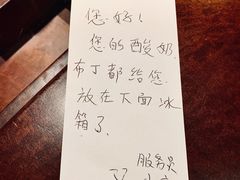 您好!
您的酸奶
布丁都给您
放在下面冰
箱了.
服务员